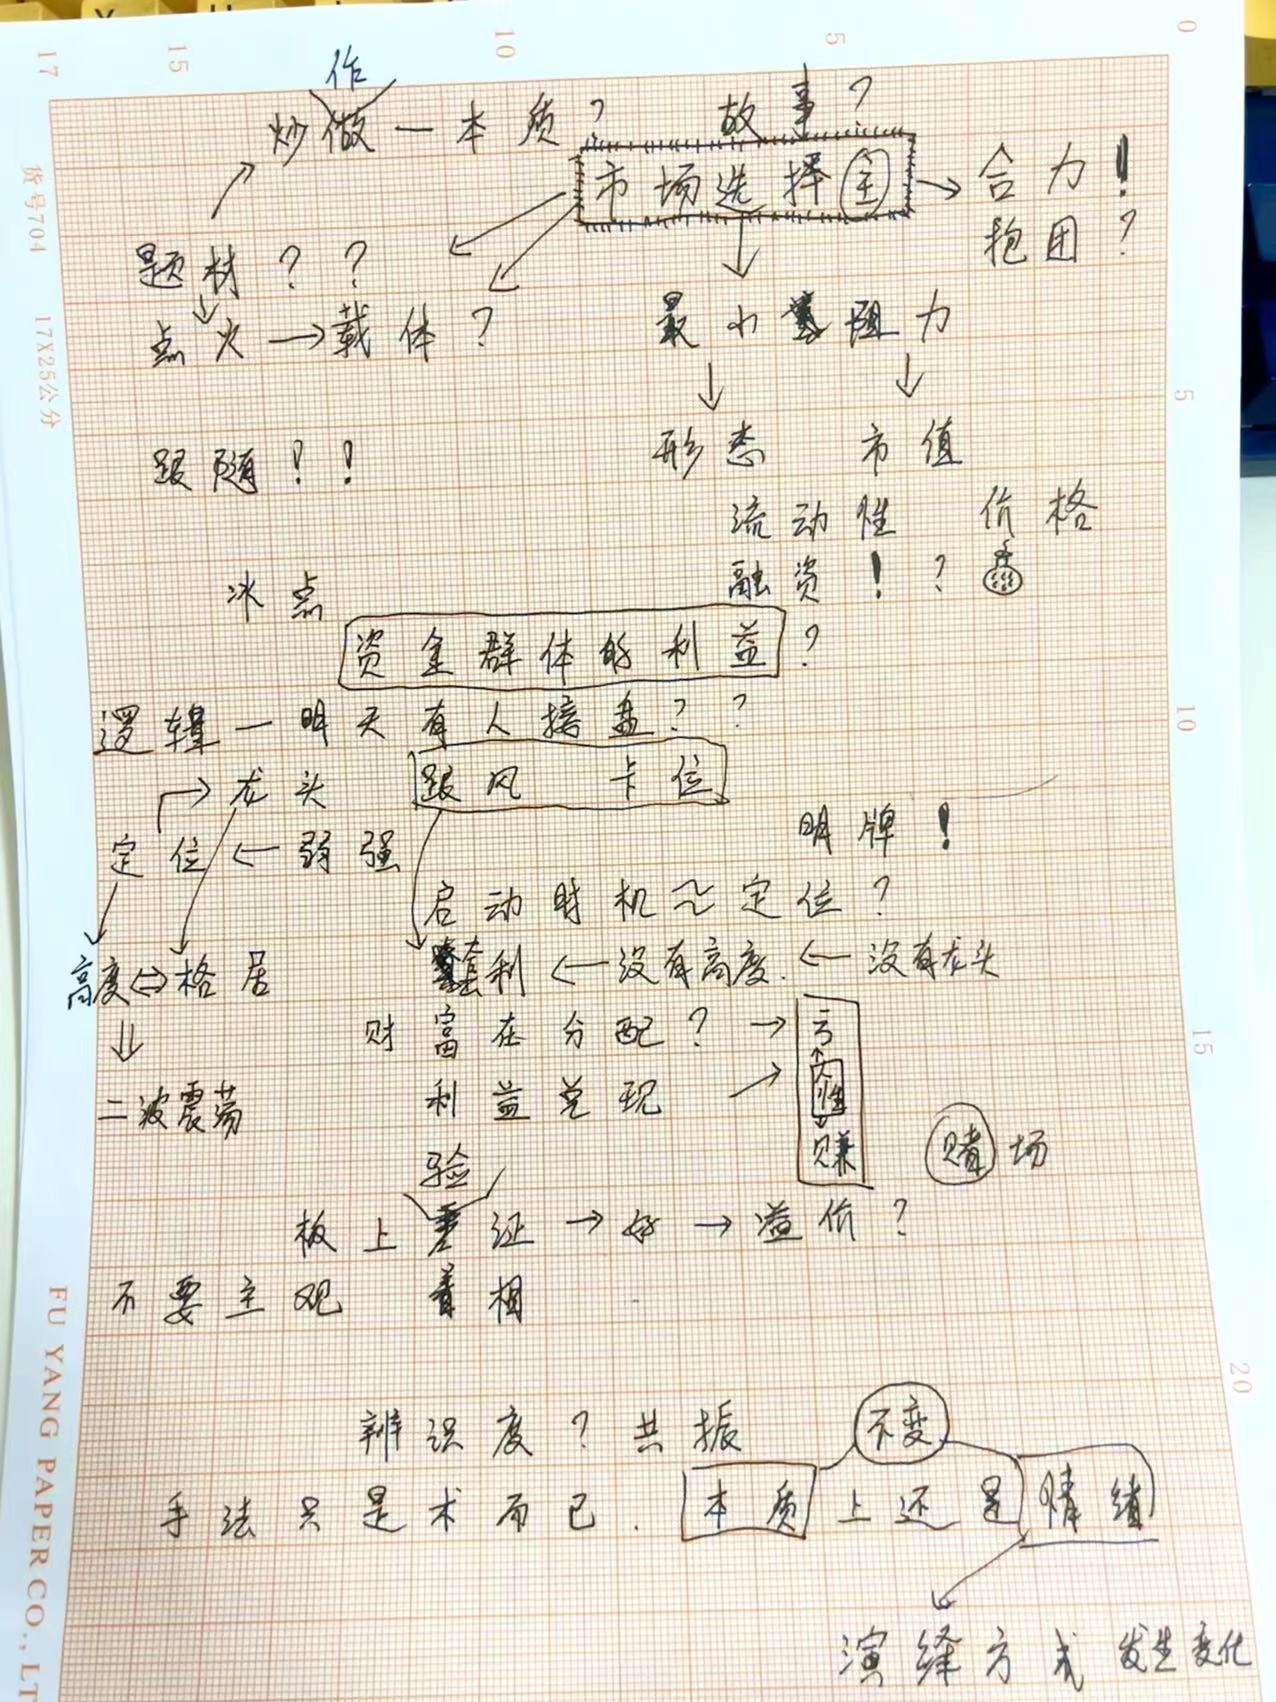 0
5
10
15
17
作
炒做—本质? 故事?
市场选择 主 → 合力!
抱团?
题材??
点火→载体?
最小阻力
跟随!!
形态 市值
流动性 价格
融资!?
冰点
资金群体的利益?
逻辑—明天有人接盘??
龙头 跟风 卡位
明牌!
定位←弱强
启动时机~定位?
高度⇔格居
套利←没有高度←没有龙头
财富在分配?→亏
人性
利益兑现
赚
二波震荡
赌场
验
板上证→好→溢价?
不要主观 着相
辨识度?共振
不变
手法只是术而已.本质上还是情绪
演绎方式发生变化
5
10
15
20
货号704 17X25公分
FU YANG PAPER CO., LT